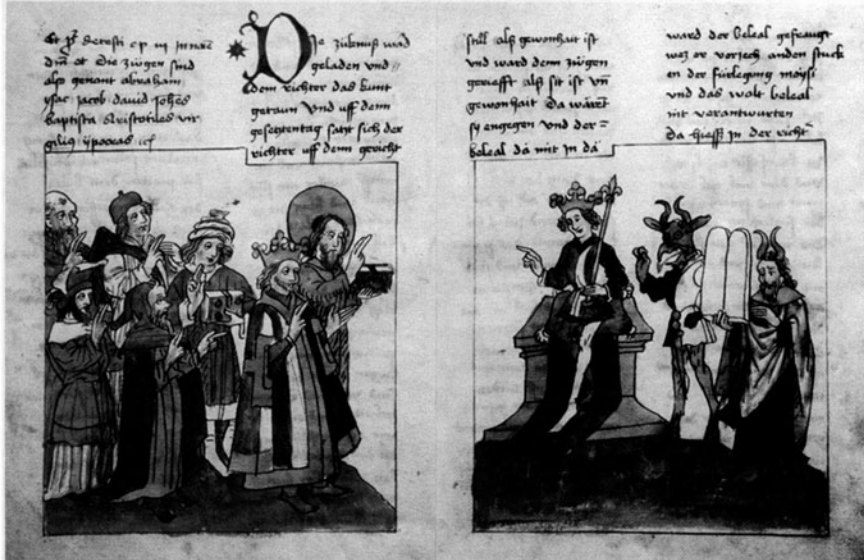 Et decreti
et die zúgen sind
also genant abraham
ysac jacob david johes
baptista Aristotiles vir
gilius ypocras
Die zúknuß ward
geladen und
dem richter das kunt
getaun Vnd uff denn
gesetzentag satzt sich der
richter uff denn gericht
still alß gewonhait ist
und ward denn zúgen
gerüefft alß sit ist vn̄
gewonhait da wärent
sy engegen und der =
beleal da mit jn da
ward der beleal gefraugt
wez er vorjech an den stuck
en der fürlegung moysi
und das walt beleal
nit verantwurten
da hiesß jn der richt